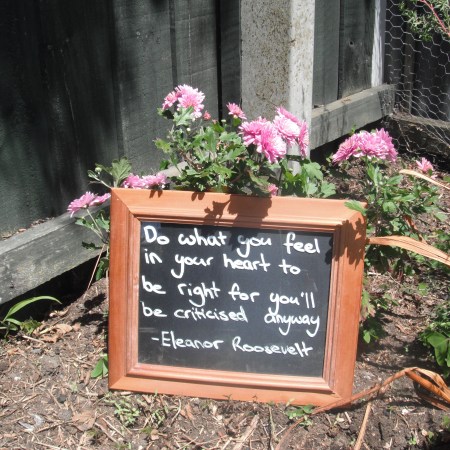 Do what you feel
in your heart to
be right for you'll
be criticised anyway
-Eleanor Roosevelt